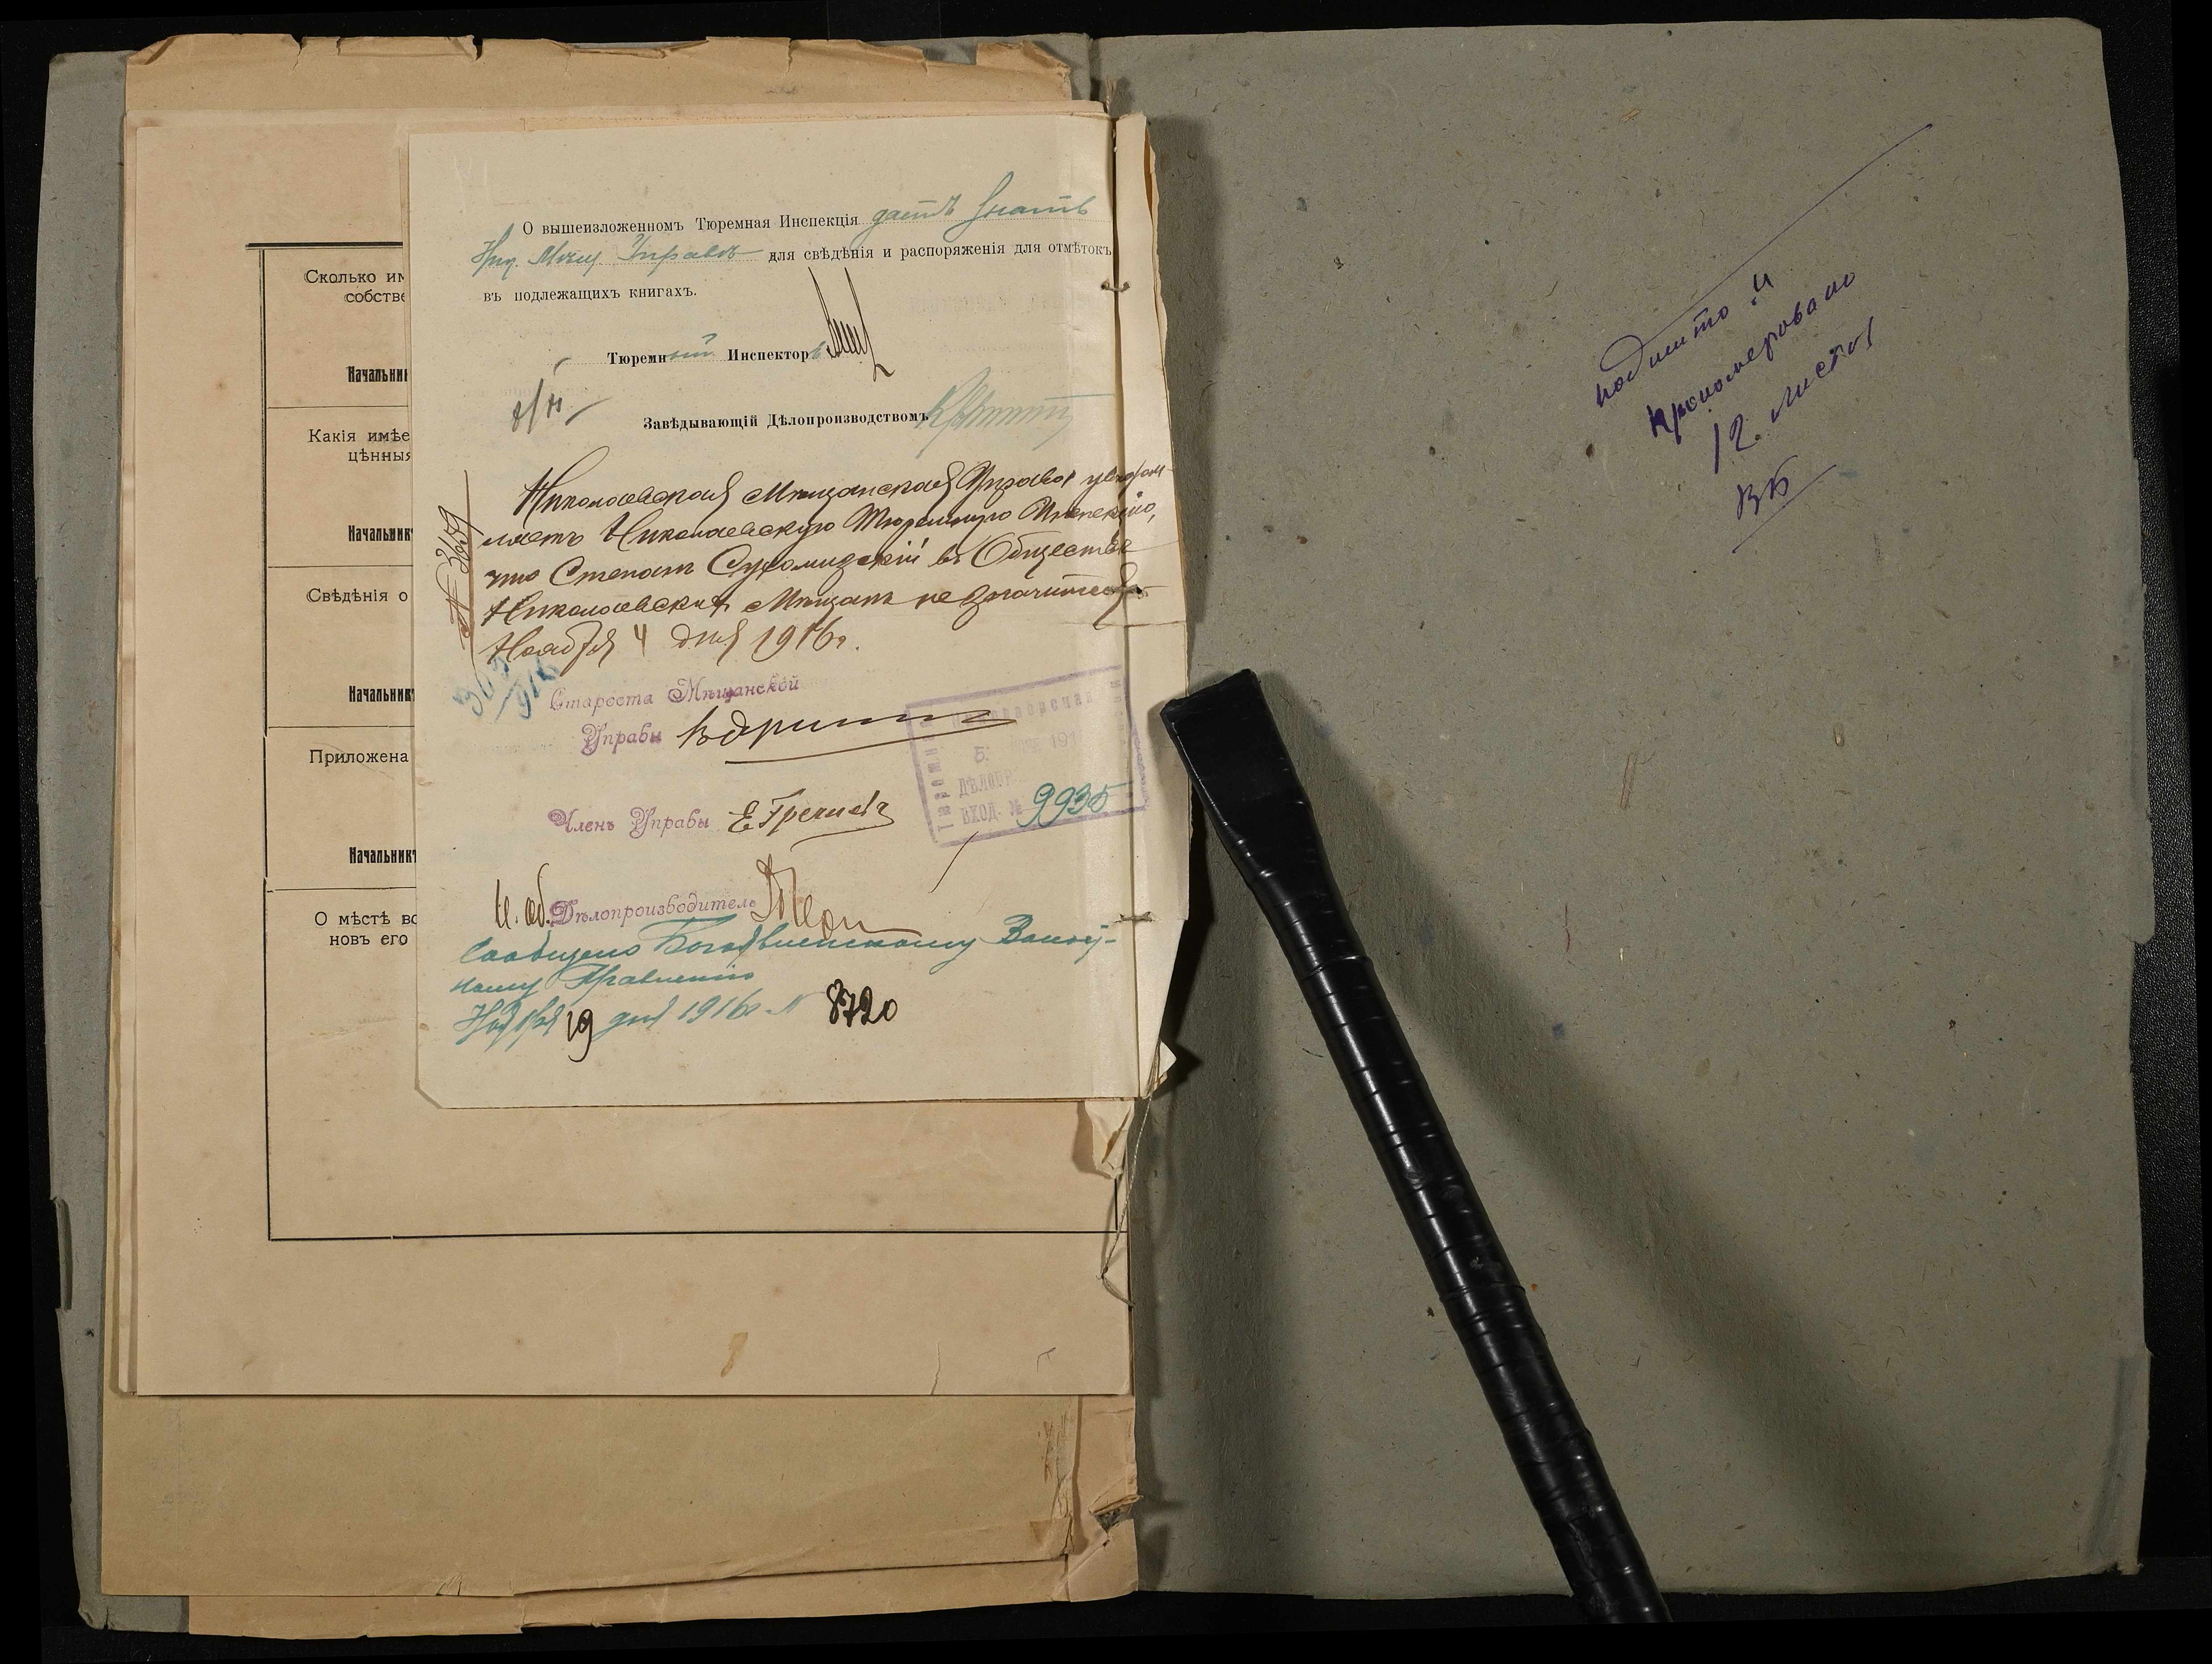 Сколько им
собстве
Начальни
Какія имѣе
цѣнныя
Начальник
Свѣдѣнія о
Начальник
Приложена
Начальник
О мѣстѣ во
новъ его
О вышеизложенномъ Тюремная Инспекція даетъ знать
Ник. Мѣщ. Управѣ для свѣдѣнія и распоряженія для отмѣтокъ
въ подлежащихъ книгахъ.
Тюремный Инспекторъ
Завѣдывающій Дѣлопроизводствомъ
Николаевская Мѣщанская Управа увѣдом-
ляетъ Николаевскую Тюремную Инспекцію,
что Степанъ Сухомудскій въ Обществѣ
Николаевскихъ Мѣщанъ не значится
Ноября 4 дня 1916 г.
Староста Мѣщанской
Управы
Членъ Управы
И. об. Дѣлопроизводитель
5. 191
ВХОД. № 9935
Сообщено Богоявленскому Волост-
ному Правленію
Ноября 19 дня 1916 г. № 8720
подшито и
прономеровано
12. листов
ВБ